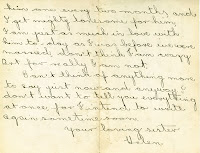 him on every two months and
I get mighty lonesome for him.
I am just as much in love with
him to-day as I was before we were
married. Don't think I am crazy
but for really I am not.
Can't think of anything more
to say just now and anyway I
don't want to tell you everything
at once, for I intend to write
again sometime soon.
Your loving sister
Helen